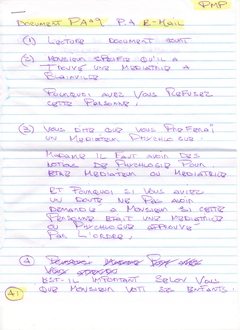 PMP
DOCUMENT PA#9 P.A E-MAIL
(1) LECTURE DOCUMENT
(2) MONSIEUR SPÉCIFIE QU'IL A
TROUVÉ UNE MÉDIATRICE À
BLAINVILLE
POURQUOI AVEZ VOUS REFUSEZ
CETTE PERSONNE.
(3) VOUS DITE QUE VOUS
UN MEDIATEUR PSYCHOLOGUE.
MADAME IL FAUT AVOIR DES
NOTION DE PSYCHOLOGIE POUR
ETRE MEDIATEUR OU MEDIATRICE
ET POURQUOI SI VOUS AVIEZ
UN DOUTE NE PAS AVOIR
DEMANDER A MONSIEUR SI CETTE
PERSONNE ETAIT UNE MEDIATRICE
OU PSYCHOLOGUE APPROUVÉ
PAR L'ORDRE.
(4)
EST-IL IMPORTANT SELON VOUS
QUE MONSIEUR SES ENFANTS.
41